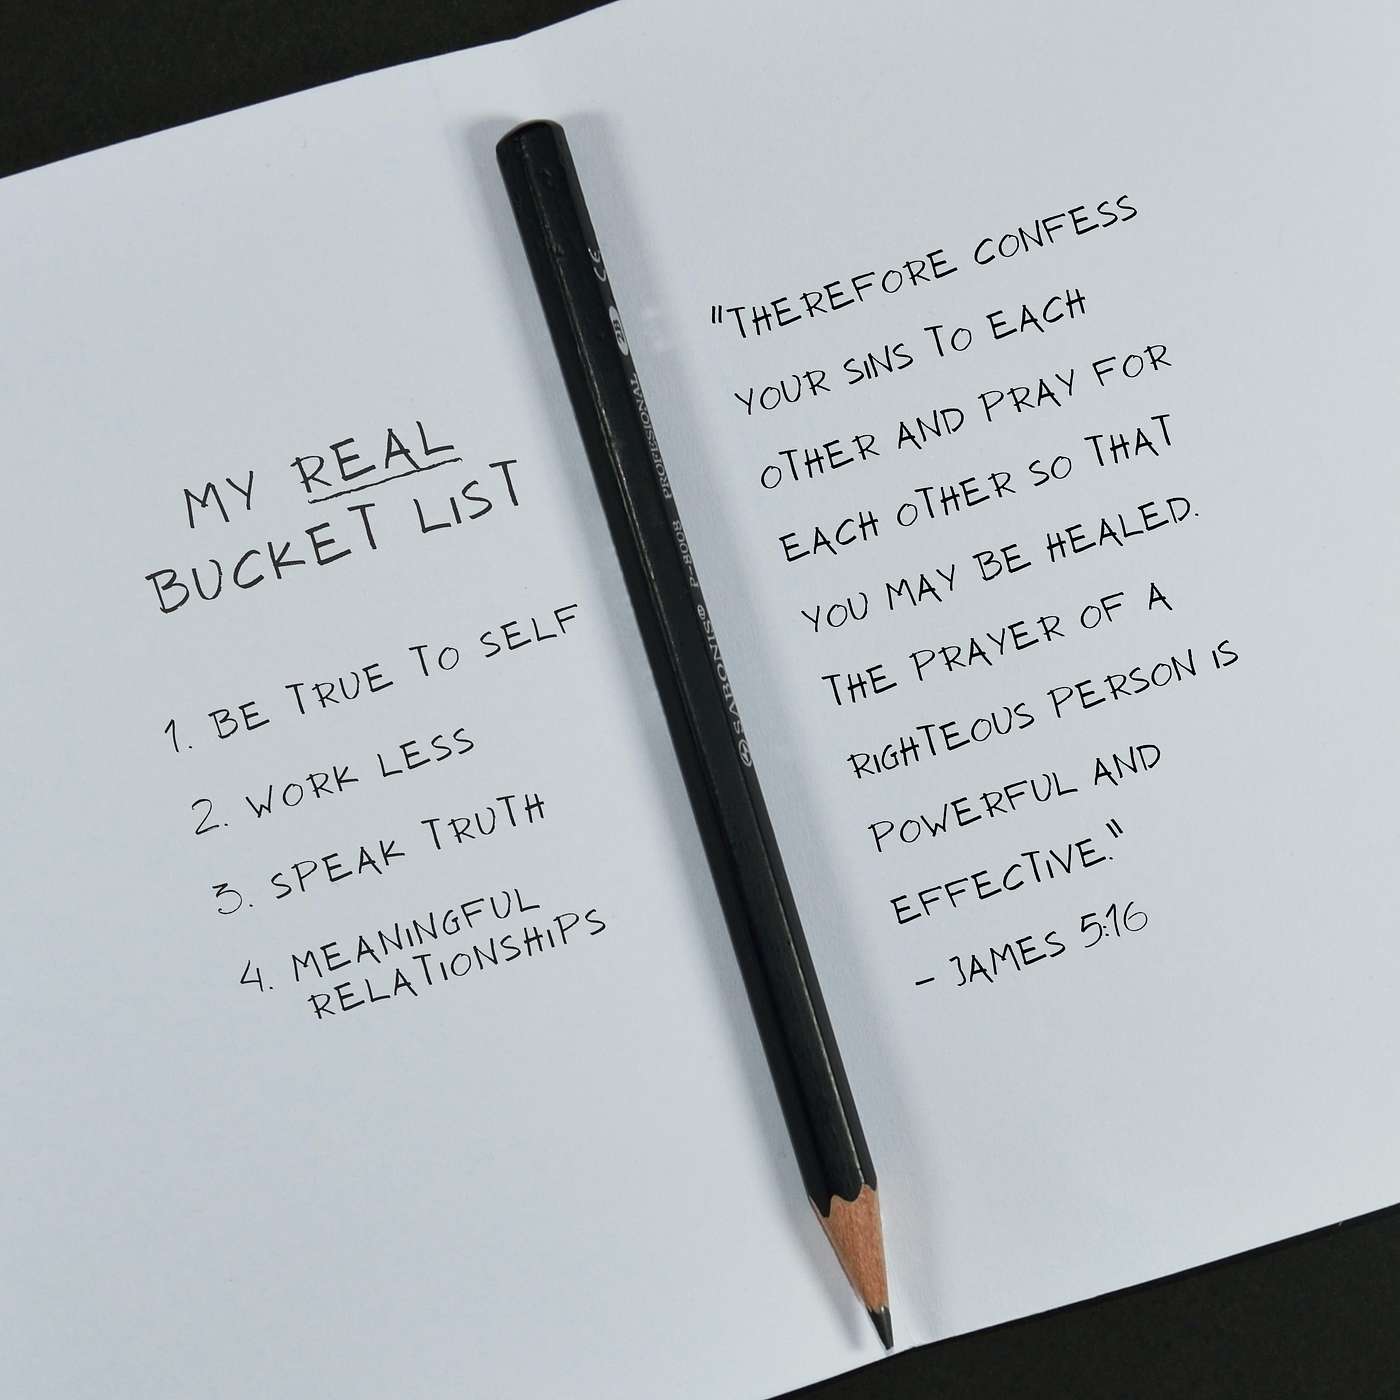 MY REAL
BUCKET LIST
1. BE TRUE TO SELF
2. WORK LESS
3. SPEAK TRUTH
4. MEANINGFUL
RELATIONSHIPS
SABONIS P-8008 PROFESSIONAL 2B CE
"THEREFORE CONFESS
YOUR SINS TO EACH
OTHER AND PRAY FOR
EACH OTHER SO THAT
YOU MAY BE HEALED.
THE PRAYER OF A
RIGHTEOUS PERSON IS
POWERFUL AND
EFFECTIVE."
- JAMES 5:16